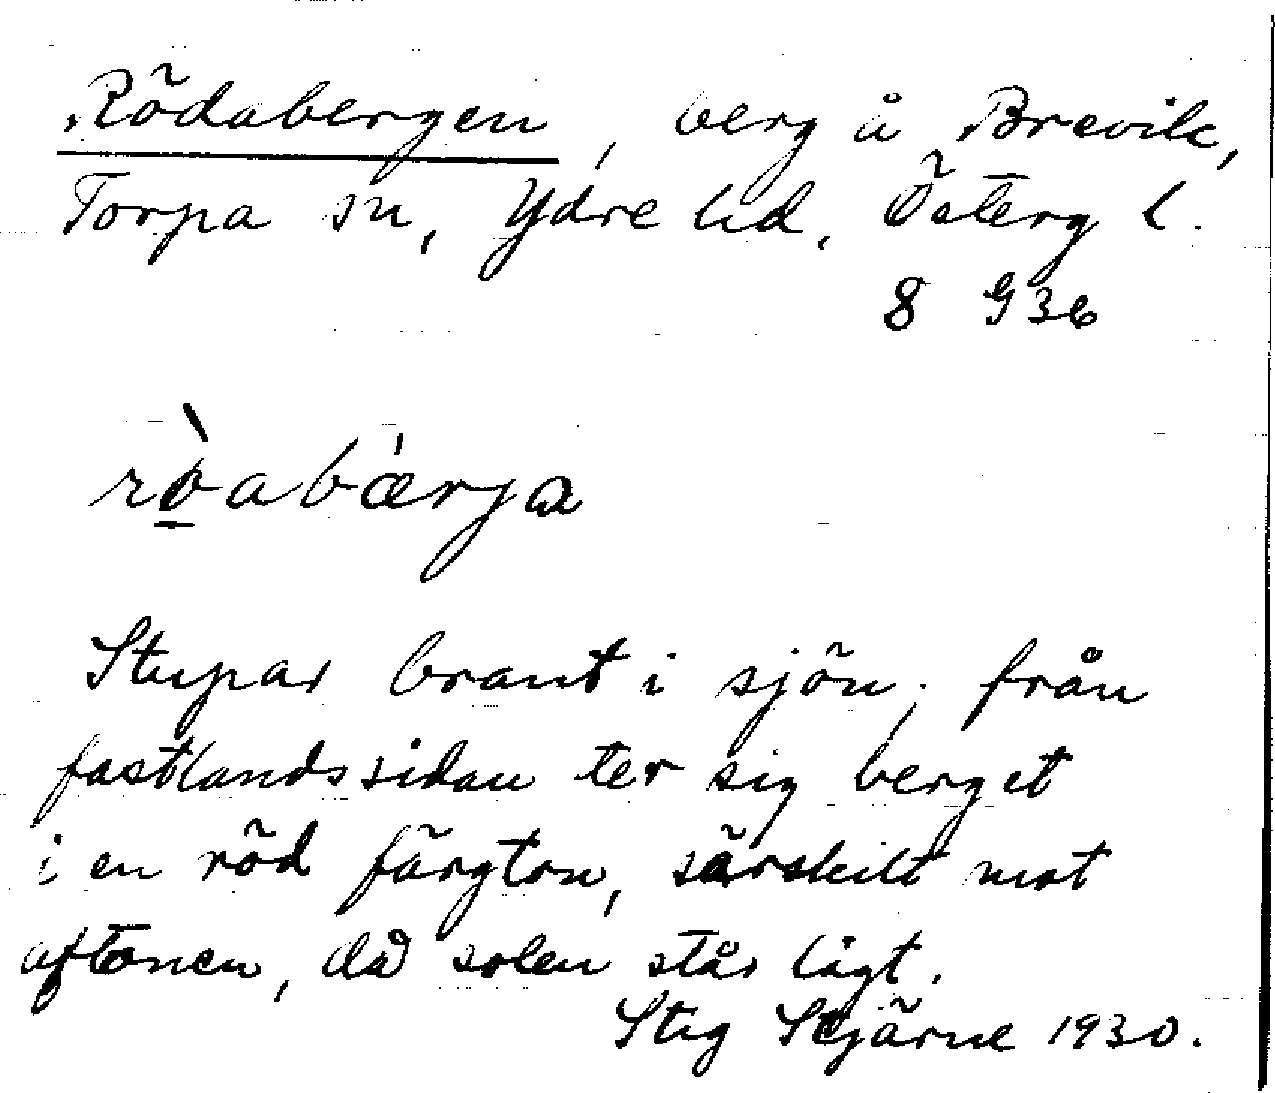 Rödabergen, berg å Brevik,
Torpa sn, Ydre hd, Österg l.
8 G 36
rò̱abærja
Stupar brant i sjön; från
fastlandssidan ter sig berget
i en röd färgton, särskilt mot
aftonen, då solen står lågt.
Stig Stjärne 1930.